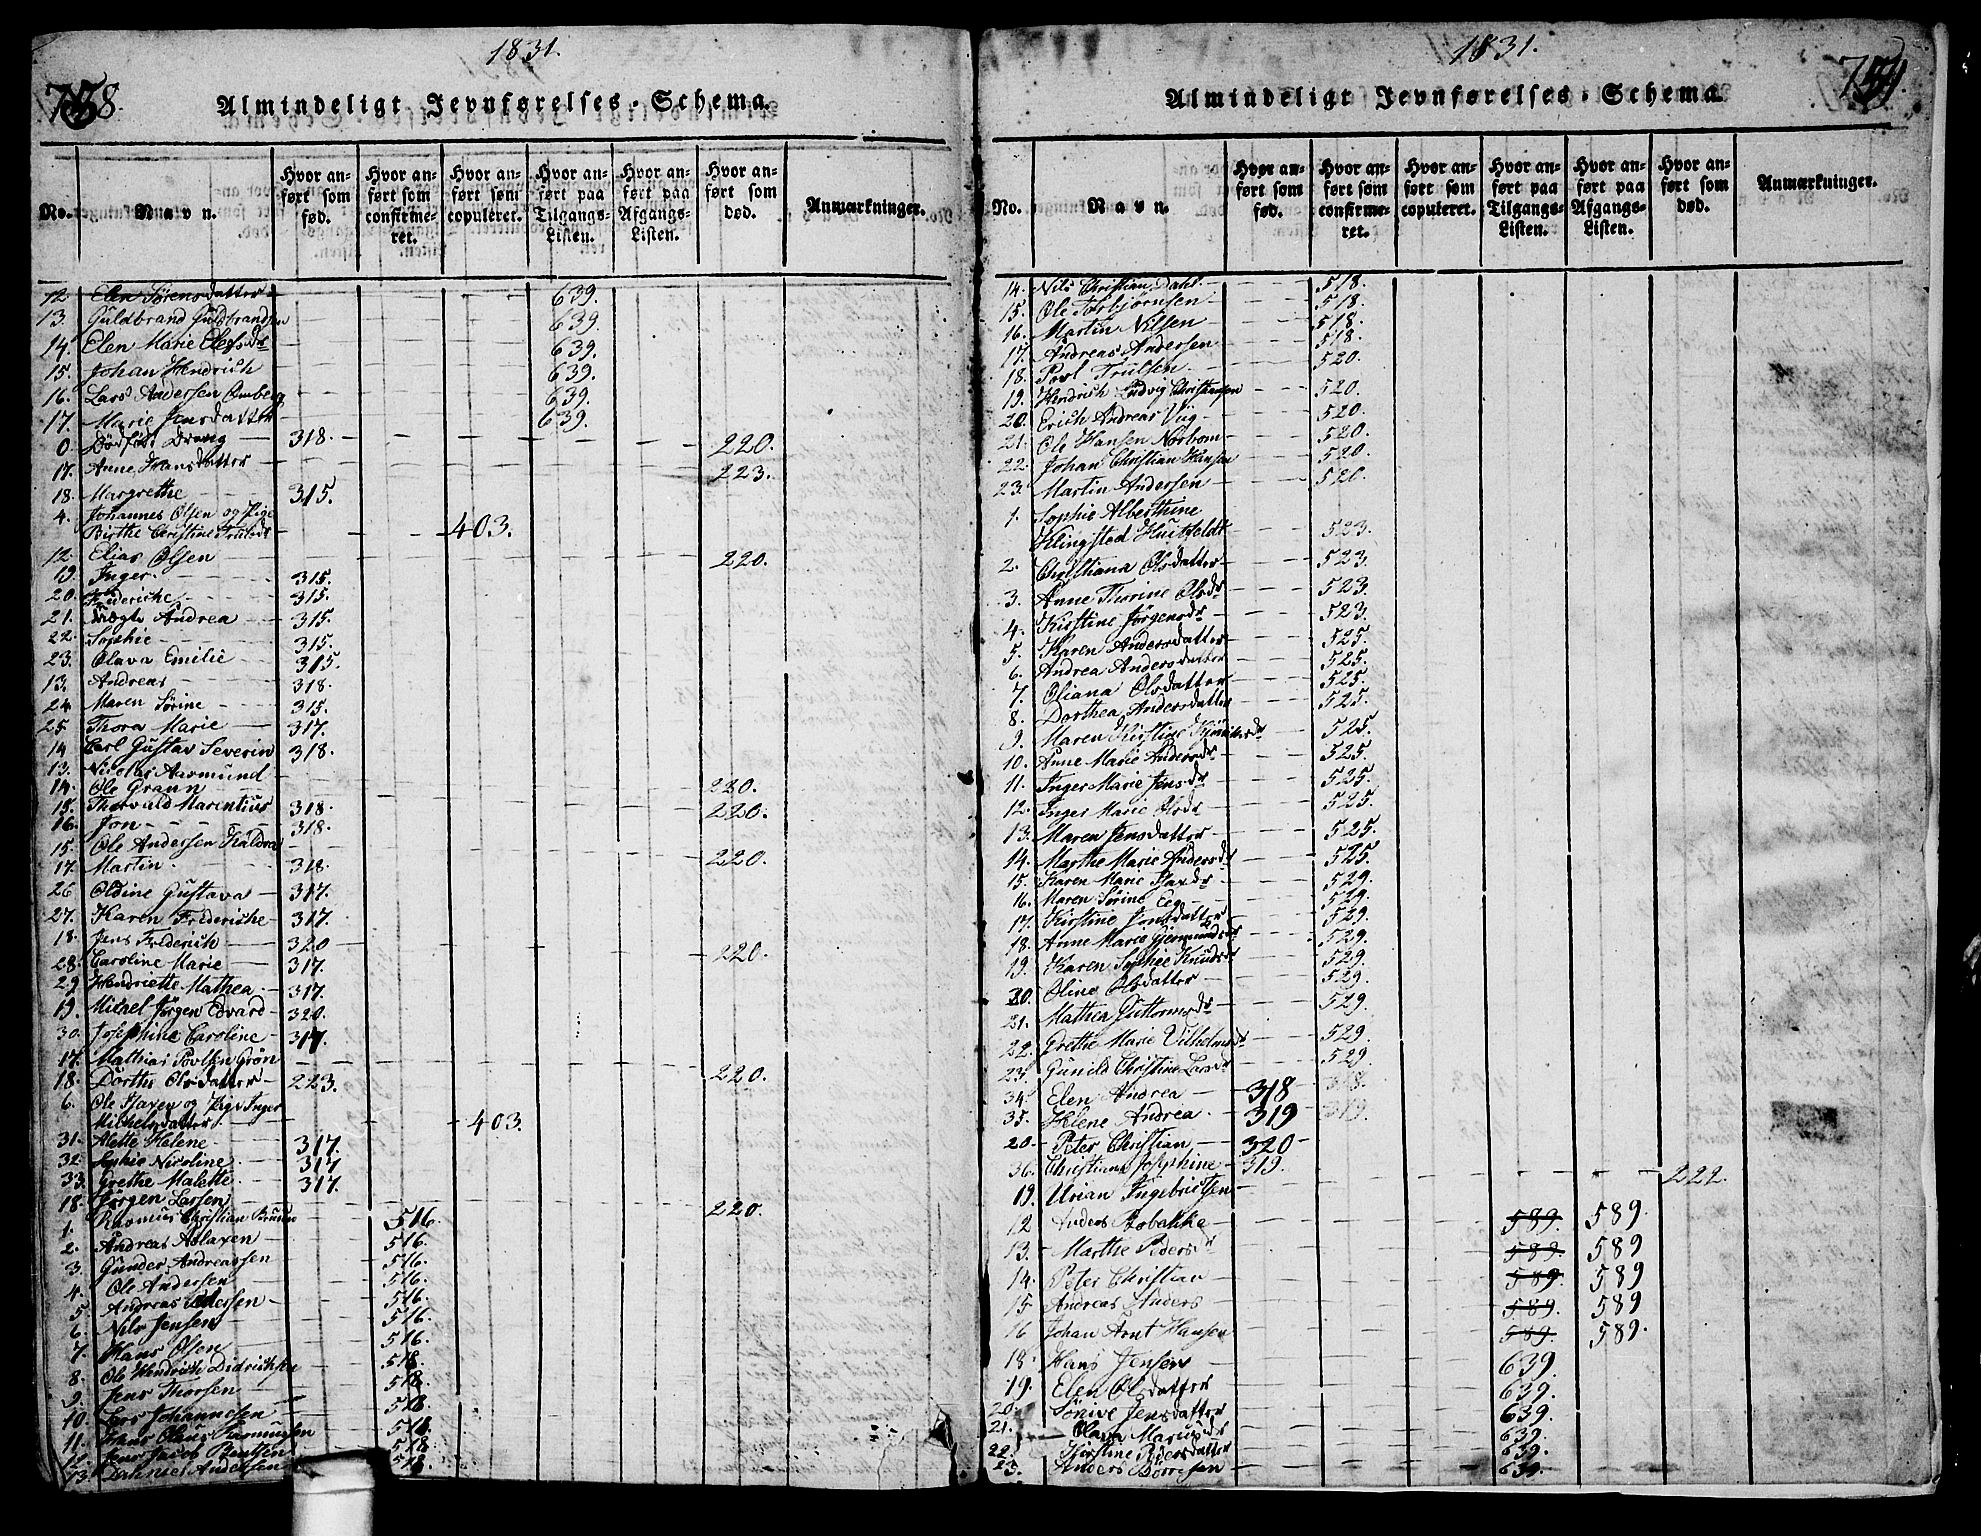 1831.
758.
Almindeligt Jevnførelses-Schema.
No. Navn. Hvor anført som fød. Hvor anført som confirmeret. Hvor anført som copuleret. Hvor anført paa Tilgangs-Listen. Hvor anført paa Afgangs-Listen. Hvor anført som død. Anmærkninger.
12 Elen Sørensdatter 639.
13. Guldbrand Guldbrandsen 639.
14. Elen Marie 639.
15. Johan Hendrich 639.
16. Lars Andersen Omberg 639.
17. Marie Jensdatter 639.
0. Dødfød Dreng 318. 220.
17. Anne Hansdatter 223.
18. Margrethe 315.
4. Johannes Olsen og Pige
Birthe Christine 403.
12. Elias Olsen 220.
19. Inger 315.
20. Frederiche 315.
21. Andrea 315.
22. Sophie 315.
23. Olava Emilie 315.
13. Andreas 318.
24 Maren Sørine 315.
25 Thora Marie 317.
14 Carl Gustav Severin 318.
13. Nicolai Aarmund
14. Ole Graun 220.
15. Thorvald Marentius 318. 220.
16. Jon 318.
15. Ole Andersen Kaldra 220.
17. Martin 318.
26 Oldine Gustava 317.
27. Karen Frederiche 317.
18. Jens Frederich 320 220.
28. Caroline Marie 317.
29 Hendriette Mathea 317.
19. Mikael Jørgen Edvard 320.
30. Josephine Caroline 317.
17. Mathias Povlsen Grøn
18. Dorthe Olsdatter 223. 220.
6. Ole Saxen og Pige Inger
Michelsdatter 403.
31. Alette Helene 317.
32. Sophie Nicoline 317
33. Grethe Malette 317.
18. Jørgen Larsen 220.
1. Rasmus Christian 516.
2. Andreas Aslaxen 516.
3. Gunder Andreassen 516.
4. Ole Andersen 516.
5. Andreas 516.
6. Nils Jensen 516.
7. Hans Olsen 516.
8. Ole Hendrich Didrichsen 518.
9. Jens Thorsen 518.
10. Lars Johannesen 518.
11. Olaus Rasmussen 518.
12. Jacob Bentsen 518.
13. Daniel Andersen 518
1831.
759.
Almindeligt Jevnførelses-Schema.
No. Navn. Hvor anført som fød. Hvor anført som confirmeret. Hvor anført som copuleret. Hvor anført paa Tilgangs-Listen. Hvor anført paa Afgangs-Listen. Hvor anført som død. Anmærkninger.
14. Nils Christian Dahl 518.
15. Ole Torbjørnsen 518.
16. Martin Nilsen 518.
17. Andreas Andersen 518.
18. Povl Trulsen 520.
19. Hendrich Ludvig Christiansen 520.
20. Erich Andreas Viig 520.
21. Ole Hansen Norbom 520.
22. Johan Christian Hansen 520
23. Martin Andersen 520.
1. Sophie Alberthine
Klingsted Huitfeldt 523.
2. Christiana Olsdatter 523.
3. Anne Thorine Olsdr 523.
4. Kirstine Jørgensdr 523.
5. Karen Andersdatter 525.
6. Andrea Andersdatter 525.
7. Oliana Olsdatter 525.
8. Dorthea Andersdatter 525.
9. Maren Kirstine 525.
10. Anne Marie Andersdr 525.
11. Inger Marie Jensdr 525.
12. Inger Marie Olsdr 525.
13. Maren Jensdatter 525.
14. Marthe Marie Andersdr 525.
15. Karen Marie Saxdr 529.
16. Maren Sørine Eeg 529.
17. Kirstine Jonsdatter 529.
18. Anne Marie 529.
19. Karen Sophie Knudsdr 529.
20. Oline Olsdatter 529.
21. Mathea Guttormsdr 529.
22. Grethe Marie Vilhelmsdr 529.
23. Gunild Christine Larsdr 529
34. Elen Andrea 318 318.
35. Helene Andrea 319 319.
20. Peter Christian 320
36. Christiana Josephine 319.
19. Urian Ingebrictsen 222.
12 Anders Bobakke 589. 589.
13. Marthe Pedersdr 589. 589
14. Peter Christian 589. 589
15 Andreas Anders 589. 589
16 Johan Arnt Hansen 589. 589.
18. Hans Jensen 639.
19. Elen Olsdatter 639.
20. Sønive Jensdatter 639.
21. Olava 639.
22. Kirstine Pedersdatter 639.
23. Anders Børresen 639.